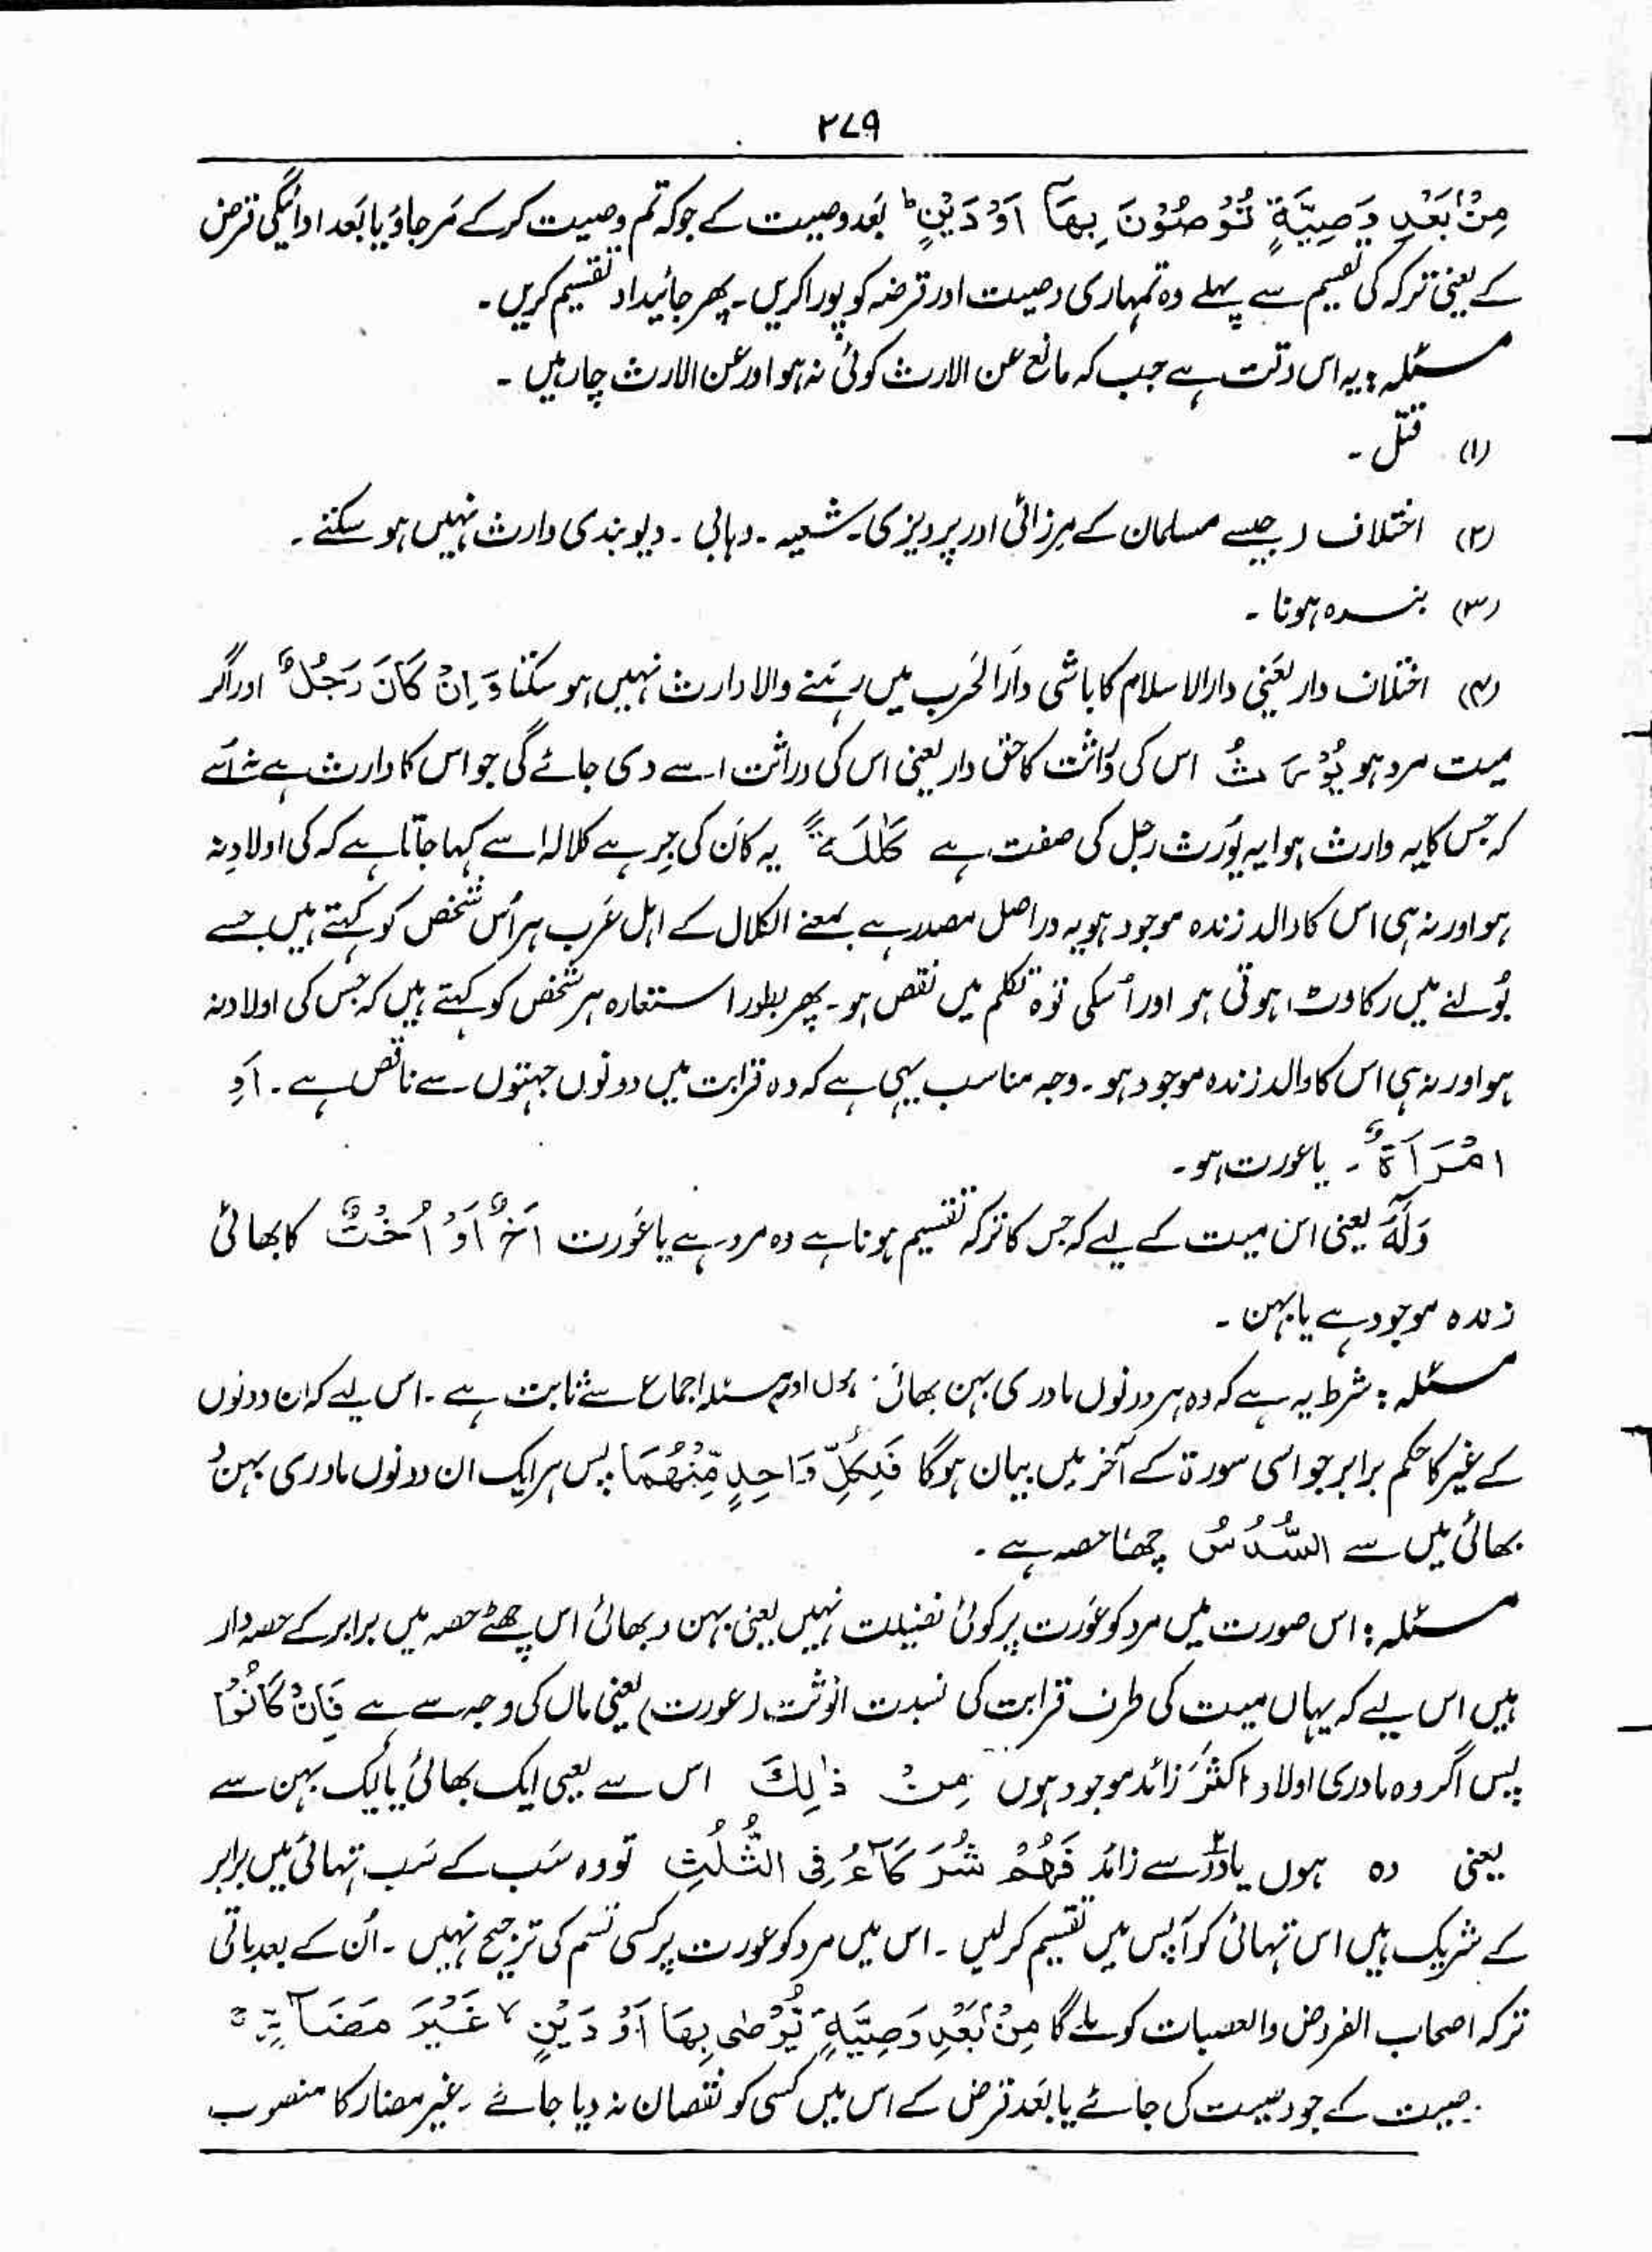 ۲۷۹
مِنْۢ بَعْدِ وَصِیَّةٍ تُوْصُوْنَ بِهَاۤ اَوْ دَیْنٍؕ بَعد وصیت کے جو کہ تم وصیت کر کے مَر جاؤ یا بَعد ادائیگی قرض
کے یعنی ترکہ کی تقسیم سے پہلے وہ تمہاری وصیت اور قرضہ کو پورا کریں۔ پھر جائیداد تقسیم کریں۔
مسئلہ: یہ اس وقت ہے جب کہ مانع عن الارث کوئی نہ ہو اور عن الارث چار ہیں۔
(۱) قتل۔
(۲) اختلاف ( جیسے مسلمان کے مرزائی اور پرویزی۔ شعیہ۔ وہابی۔ دیوبندی وارث نہیں ہو سکتے۔
(۳) بندہ ہونا۔
(۴) اختلاف دار یعنی دارالاسلام کا باشی دارَالحَرب میں رہنے والا وارث نہیں ہو سکتا وَ اِنْ كَانَ رَجُلٌ اور اگر
میت مرد ہو یُّوْرَثُ اس کی وَراثت کا حق دار یعنی اس کی وراثت اسے دی جائے گی جو اس کا وارث ہے نہ اُسے
کہ جس کا یہ وارث ہوا یہ یُورَث رجل کی صفت ہے كَلٰلَةً یہ کَانَ کی خبر ہے کلالہ اسے کہا جاتا ہے کہ کی اولاد نہ
ہو اور نہ ہی اس کا والد زندہ موجود ہو یہ دراصل مصدر ہے بمعنے الکلال کے اہل عَرب ہر اُس شخص کو کہتے ہیں جسے
بُولنے میں رکاوٹ ہوتی ہو اور اُسکی قوۃ تکلم میں نقص ہو۔ پھر بطور استعارہ ہر شخص کو کہتے ہیں کہ جس کی اولاد نہ
ہو اور نہ ہی اس کا والد زندہ موجود ہو۔ وجہ مناسب یہی ہے کہ وہ قرابت میں دونوں جہتوں سے ناقص ہے۔ اَوِ
امْرَاَةٌ۔ یا عورت ہو۔
وَّلَهٗۤ یعنی اس میت کے لیے کہ جس کا ترکہ تقسیم ہونا ہے وہ مرد ہے یا عَورت اَخٌ اَوْ اُخْتٌ کا بھائی
زندہ موجود ہے یا بہن۔
مسئلہ: شرط یہ ہے کہ وہ ہر دونوں مادری بہن بھائی ہوں اور یہ مسئلہ اجماع سے ثابت ہے۔ اس لیے کہ ان دونوں
کے غیر کا حکم برابر جو اسی سورۃ کے آخر میں بیان ہوگا فَلِكُلِّ وَاحِدٍ مِّنْهُمَا پس ہر ایک ان دونوں مادری بہن
بھائی میں سے السُّدُسُ چھٹا حصہ ہے۔
مسئلہ: اس صورت میں مرد کو عَورت پر کوئی فضیلت نہیں یعنی بہن و بھائی اس چھٹے حصہ میں برابر کے حصہ دار
ہیں اس لیے کہ یہاں میت کی طرف قرابت کی نسبت انوثت (عورت) یعنی ماں کی وجہ سے ہے فَاِنْ كَانُوْۤا
پس اگر وہ مادری اولاد اَكْثَرَ زائد موجود ہوں مِنْ ذٰلِكَ اس سے یعنی ایک بھائی یا ایک بہن سے
یعنی وہ ہوں یا دو سے زائد فَهُمْ شُرَكَآءُ فِی الثُّلُثِ تو وہ سَب کے سَب تہائی میں برابر
کے شریک ہیں اس تہائی کو آپس میں تقسیم کر لیں۔ اس میں مرد کو عورت پر کسی قسم کی ترجیح نہیں۔ اُن کے بعد باقی
ترکہ اصحاب الفروض والعصبات کو ملے گا مِنْۢ بَعْدِ وَصِیَّةٍ یُّوْصٰى بِهَاۤ اَوْ دَیْنٍۙ غَیْرَ مُضَآرٍّۚ
وصیت کے جو وصیت کی جائے یا بَعد قرض کے اس میں کسی کو نقصان نہ دیا جائے۔ غیر مضار کا منصوب